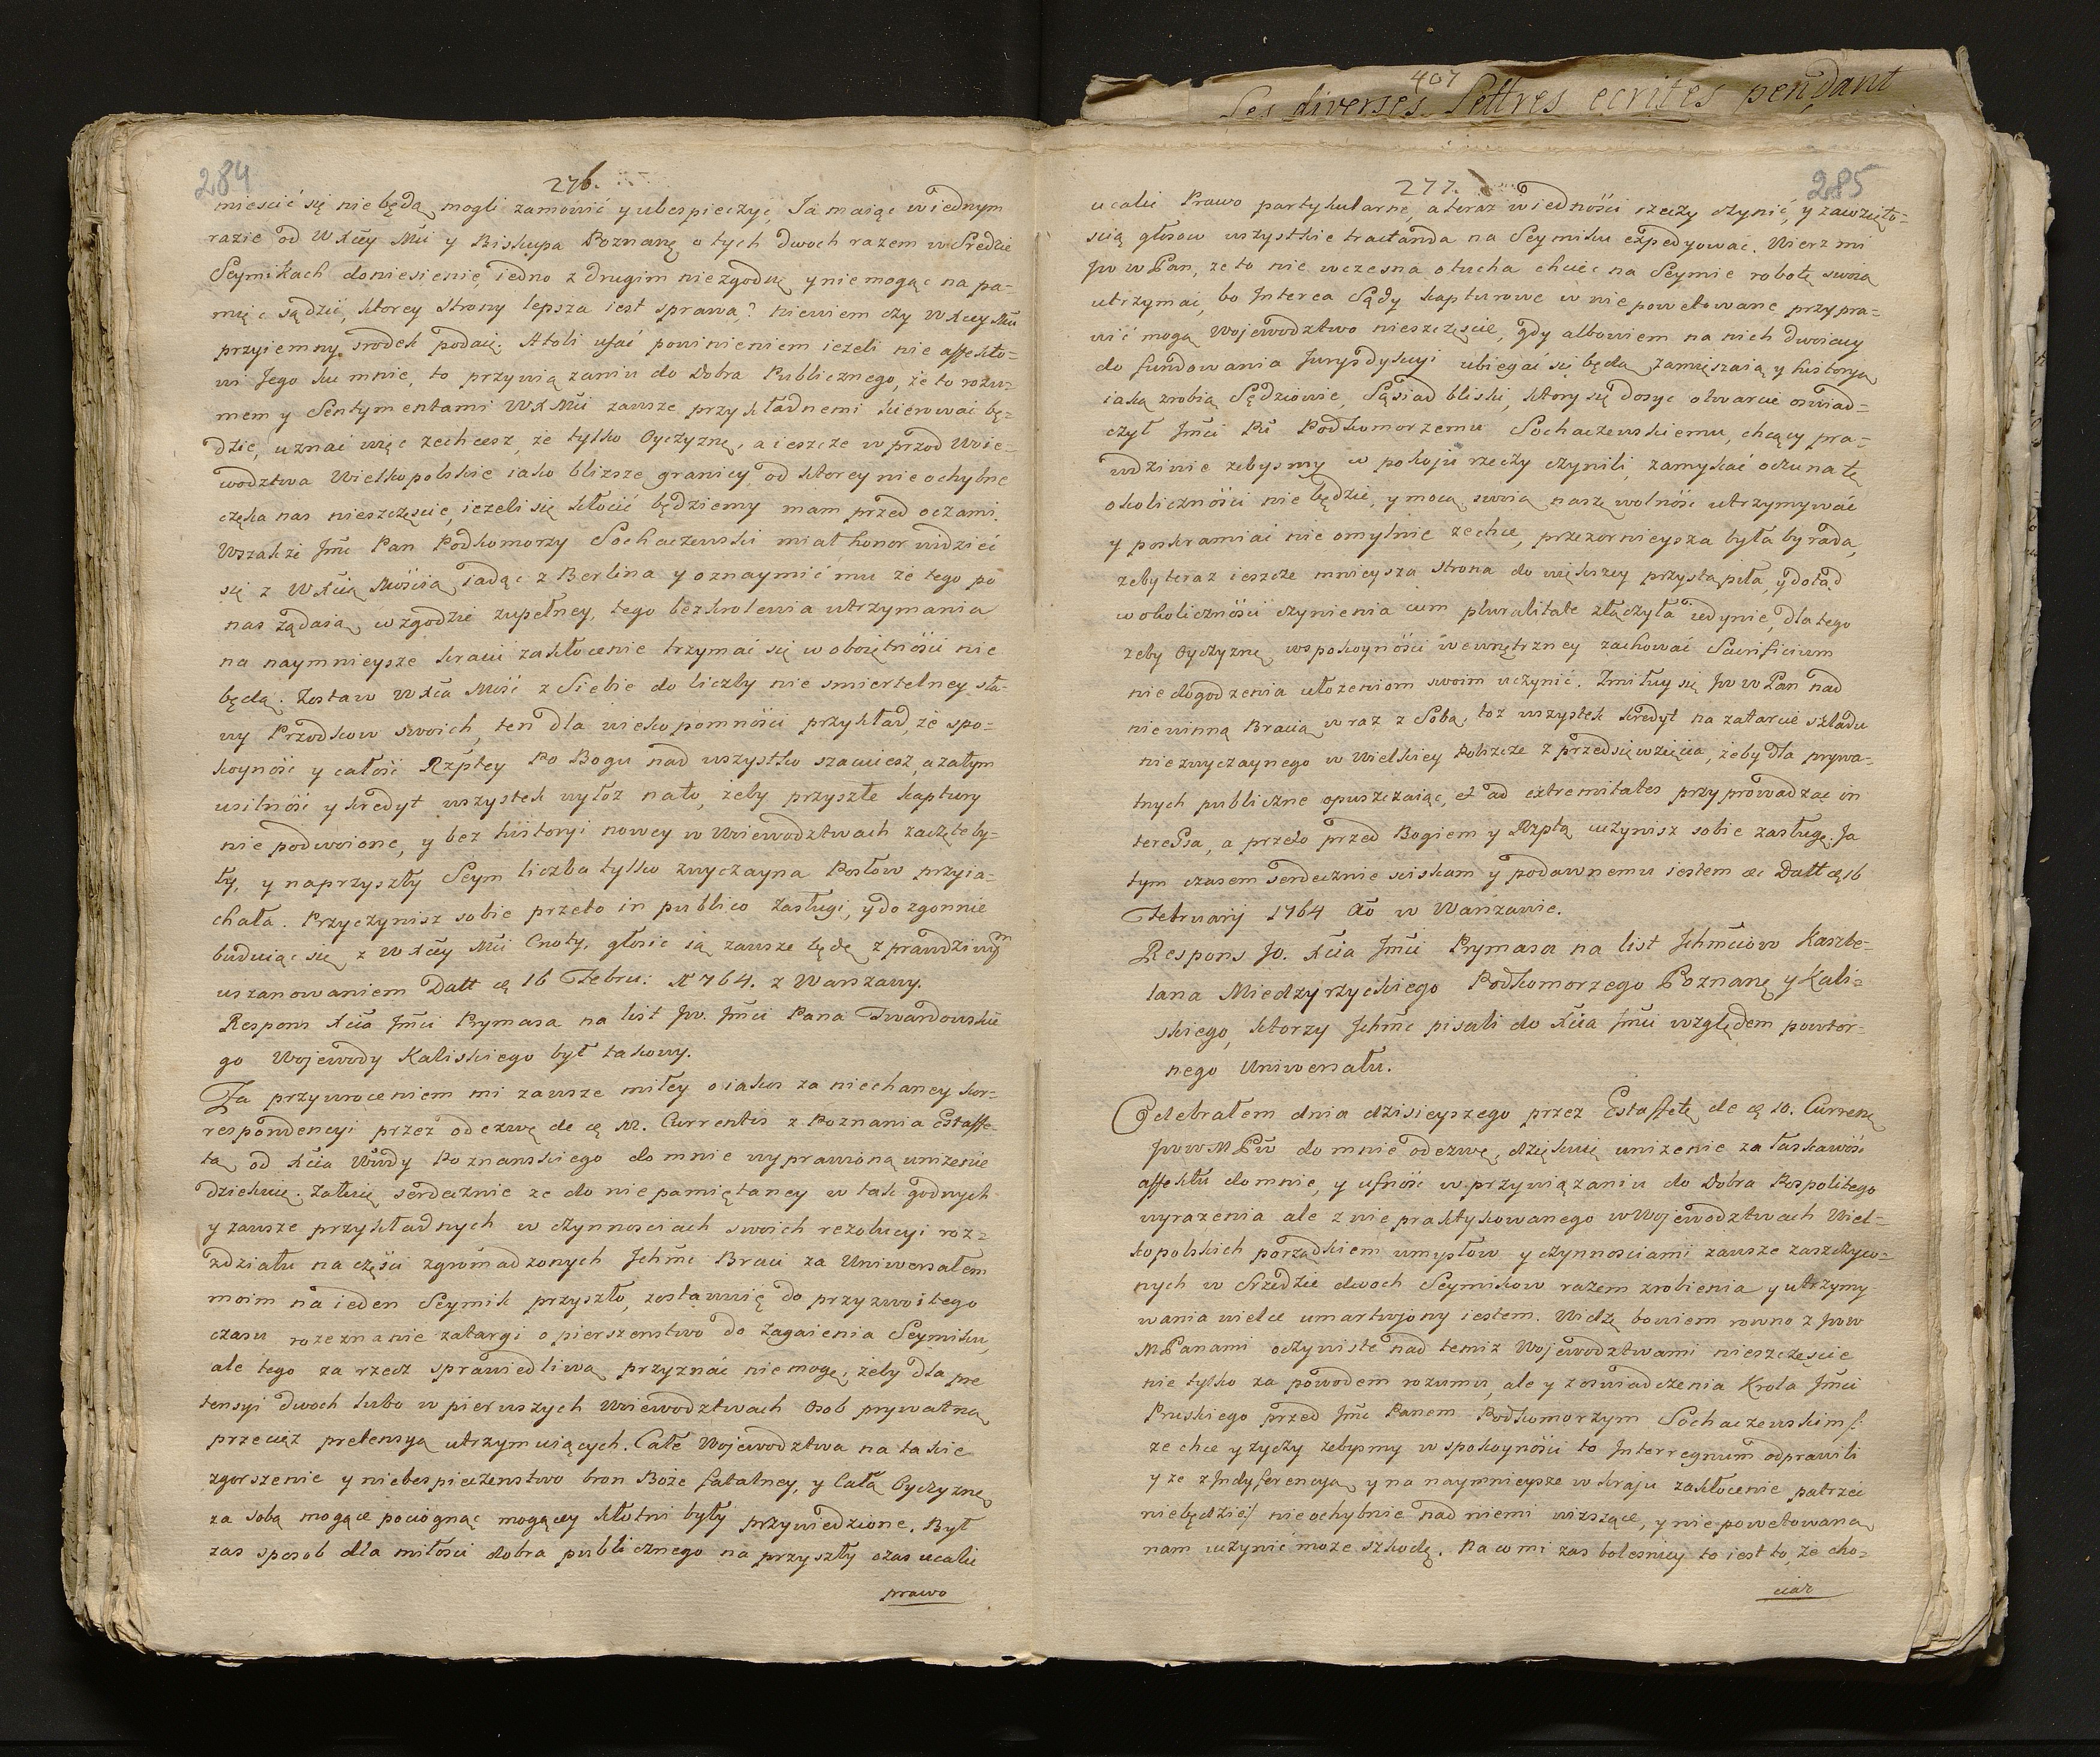 284
276.
miescić się niebędą mogli zamówić y ubespieczyc, Ja maiąc w iednym
razie od WXcey Mći y Biskupa Poznanę o tych dwoch razem w Sredzie
Seymikach doniesienie, iedno z drugim niezgodne y niemogąc na pa-
mięc sądzić, ktorey strony lepsza iest sprawa? niewiem czy WXcey Mći
przyiemny srodek podaię. Atoli ufać powinieniem iezeli nie affekto-
wi Jego ku mnie, to przywiązaniu do Dobra Publicznego, że to rozu-
mem y Sentymentami WXMći zawsze przykładnemi kierować bę-
dzie, uznać więc zechcesz, że tylko Oyczyznę, a ieszcze w przod Woie-
wodztwa Wielkopolskie iako bliższe granicy, od ktorey nieochybne
czeka nas nieszczęscie, iezeli się kłocić będziemy mam przed oczami.
Wszakże Jmć Pan Podkomorzy Sochaczewski miał honor widzieć
się z WXcią Mością iadąc z Berlina y oznaymić mu że tego po
nas żądaią, w zgodzie zupełney, tego bezkrolewia utrzymania
na naymnieysze kraiu zakłocenie trzymać się w oboiętności nie
będą. Zostaw WXca Mość z Siebie do liczby nie smiertelney sła-
wy Przodkow swoich, ten dla wiekopomności przykład, że spo-
koyność y całość Rzptey Po Bogu nad wszystko szacuiesz, a zatym
usilność y kredyt wszystek wyłoz nato, zeby przyszłe kaptury
nie podwoione, y bez historyi nowey w Woiewodztwach zaczęte by-
ły, y naprzyszły Seym liczba tylko zwyczayna Posłow przyia-
chała. Przyczynisz sobie przeto in publico zasługi, y do zgonnie
buduiąc się z WXcey Mći Cnoty, głosic ią zawsze będę z prawdziwym
uszanowaniem Datt ę 16 Febru: A 764. z Warszawy.
Respons Xcia Jmći Prymasa na list Jw. Jmći Pana Twardowskie
go Wojewody Kaliskiego był takowy.
Za przywroceniem mi zawsze miłey o iakos zaniechaney kor-
respondencyi przez odezwę de ę Currentis z Poznania Estaffe-
tą od Xcia Wwdy Poznanskiego do mnie wyprawioną unizenie
dziekuię. Załuię serdecznie ze do nie pamiętaney w tak godnych
y zawsze przykładnych w czynnosciach swoich rezolucyi roz-
zdziału na częsci zgromadzonych Jchmć Braci za Uniwersałem
moim na ieden Seymik przyszło, zostawuię do przyzwoitego
czasu rozeznanie zatargi o pierszenstwo do zagaienia Seymiku,
ale tego za rzecz sprawiedliwą przyznać niemogę, żeby dla pre
tensyi dwoch lubo w pierwszych Woiewodztwach Osob prywatną
przecięz pretensyą utrzymuiących. Całe Wojewodztwa na takie
zgorszenie y niebespieczenstwo bron Boże fatalney, y Całą Oyczyznę
za sobą mogące pociognąc mogącey kłotni były przywiedzione. Był
zas sposob dla miłości dobra publicznego na przyszły czas ucalic
prawo
407
Les diverses Lettres ecrites pendant
277.
285
ucalic Prawo partykularne, a teraz w iedności rzeczy czynić, y zawzięto-
scią głosow wszystkie tractanda na Seymiku expedyowac. Wierz mi
Jww Pan, ze to nie wczesna otucha chciec na Seymie robotę swoią
utrzymać, bo Interea Sądy kapturowe w nie powetowane przypra-
wić mogą Wojewodztwo nieszczęscie, gdy albowiem na nich dwoiacy
do fundowania Jurysdykcyi ubiegać się będą zamięszaią y historyą
iaką zrobią Sędziowie, Sąsiad bliski, ktory się dosyc otwarcie oswiad-
czył Jmći Pu Podkomorzemu Sochaczewskiemu, chcący pra-
wdziwie zebysmy w pokoju rzeczy czynili, zamykać oczu na te
okoliczności nie będzie, y mocą swoią naszę wolność utrzymywać
y poskramiać nieomylnie zechce, przezornieysza była by rada,
zeby teraz ieszcze mnieysza strona do większey przystąpiła, y dotąd
w okoliczności czynienia cum pluralitate złączyła iedynie, dla tego
zeby Oyczyznę w spokoyności wewnętrzney zachować Sacrificium
nie dogodzenia ułozeniom swoim uczynić. Zmiłuy się Jww Pan nad
niewinną Bracią, wraz z Sobą, toz wszystek kredyt na zatarcie szladu
niezwyczaynego w Wielkiey Polszcze z przedsięwzięcia, żeby dla prywa-
tnych publiczne opuszczaiąc, et ad extremitates przyprowadzac in
teressa, a przeto przed Bogiem y Rzptą uczynisz sobie zasługę. Ja
tym czasem serdecznie sciskam y podawnemu iestem &c Datt ę 16
Februarij 1764 Ao w Warszawie.
Respons Jo. Xcia Jmći Prymasa na list Jchmciow Kaszte-
lana Miedzyrzyckiego Podkomorzego Poznanę y Kali-
skiego, ktorzy Jchmć pisali do Xcia Jmći względem powtor-
nego Uniwersału.
Odebrałem dnia dzisieyszego przez Estaffetę de ę 10. Currentę
JwwMPw do mnie odezwę, dziękuię unizenie za łaskawość
affektu do mnie, y ufność w przywiązaniu do Dobra Pospolitego
wyrazenia ale z nie praktykowanego w Wojewodztwach Wiel-
kopolskich porządkiem umysłow y czynnosciami zawsze zaszczyco-
nych w Srzedzie dwoch Seymikow razem zrobienia y utrzymy
wania wielce umartwjony iestem. Widzę bowiem rowno z Jww
MPanami oczywiste nad temiz Wojewodztwami nieszczęscie
nie tylko za powodem rozumu, ale y zoswiadczenia Krola Jmći
Pruskiego przed Jmć Panem Podkomorzym Sochaczewskim /:
ze chce y zyczy zebysmy w spokoyności to Interregnum odprawili
y ze z Indyferencyą y na naymnieysze w kraju zakłocenie patrzeć
niebędzie :/ nieochybnie nad niemi wiszące, y nie powetowaną
nam uczynić może szkodę. Naco mi zas bolesniey to iest to, że cho-
ciaz